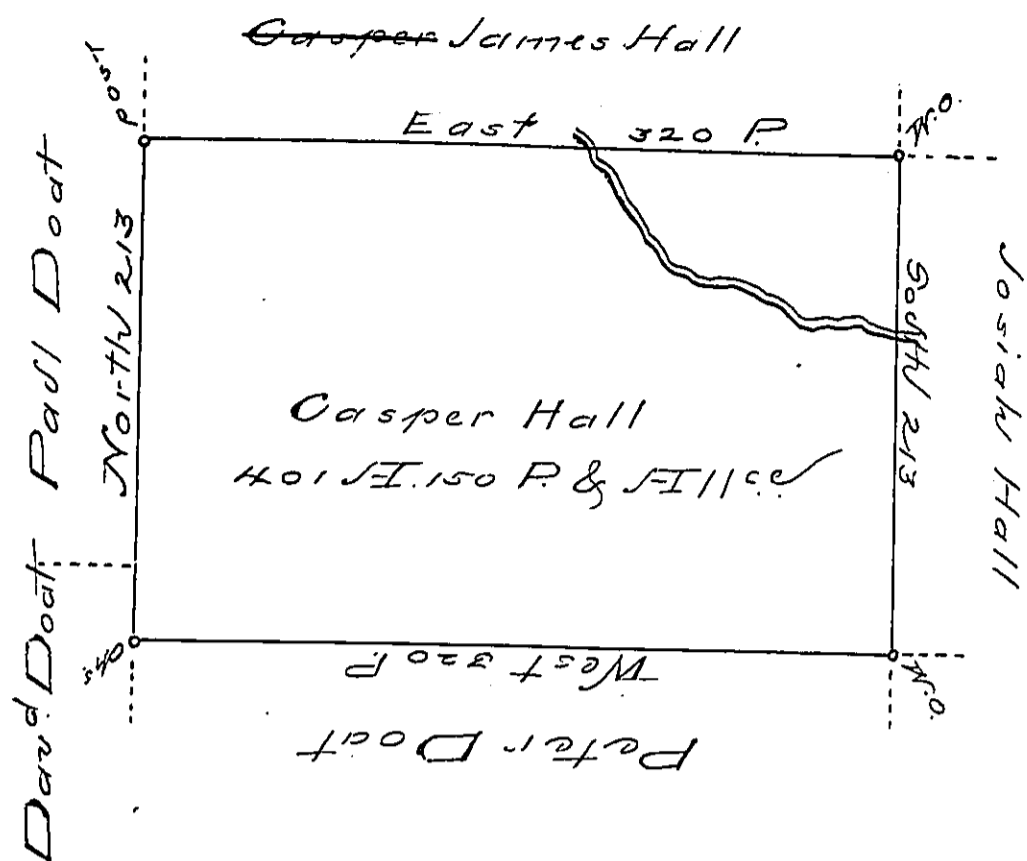 Casper James Hall
Post
W.O.
East 320 P.
Paul Doat
North 213
South 213
Josiah Hall
Casper Hall
401 A. 150 P. & Allce
Dav.d Doat
W.O.
West 320 P.
Peter Doat